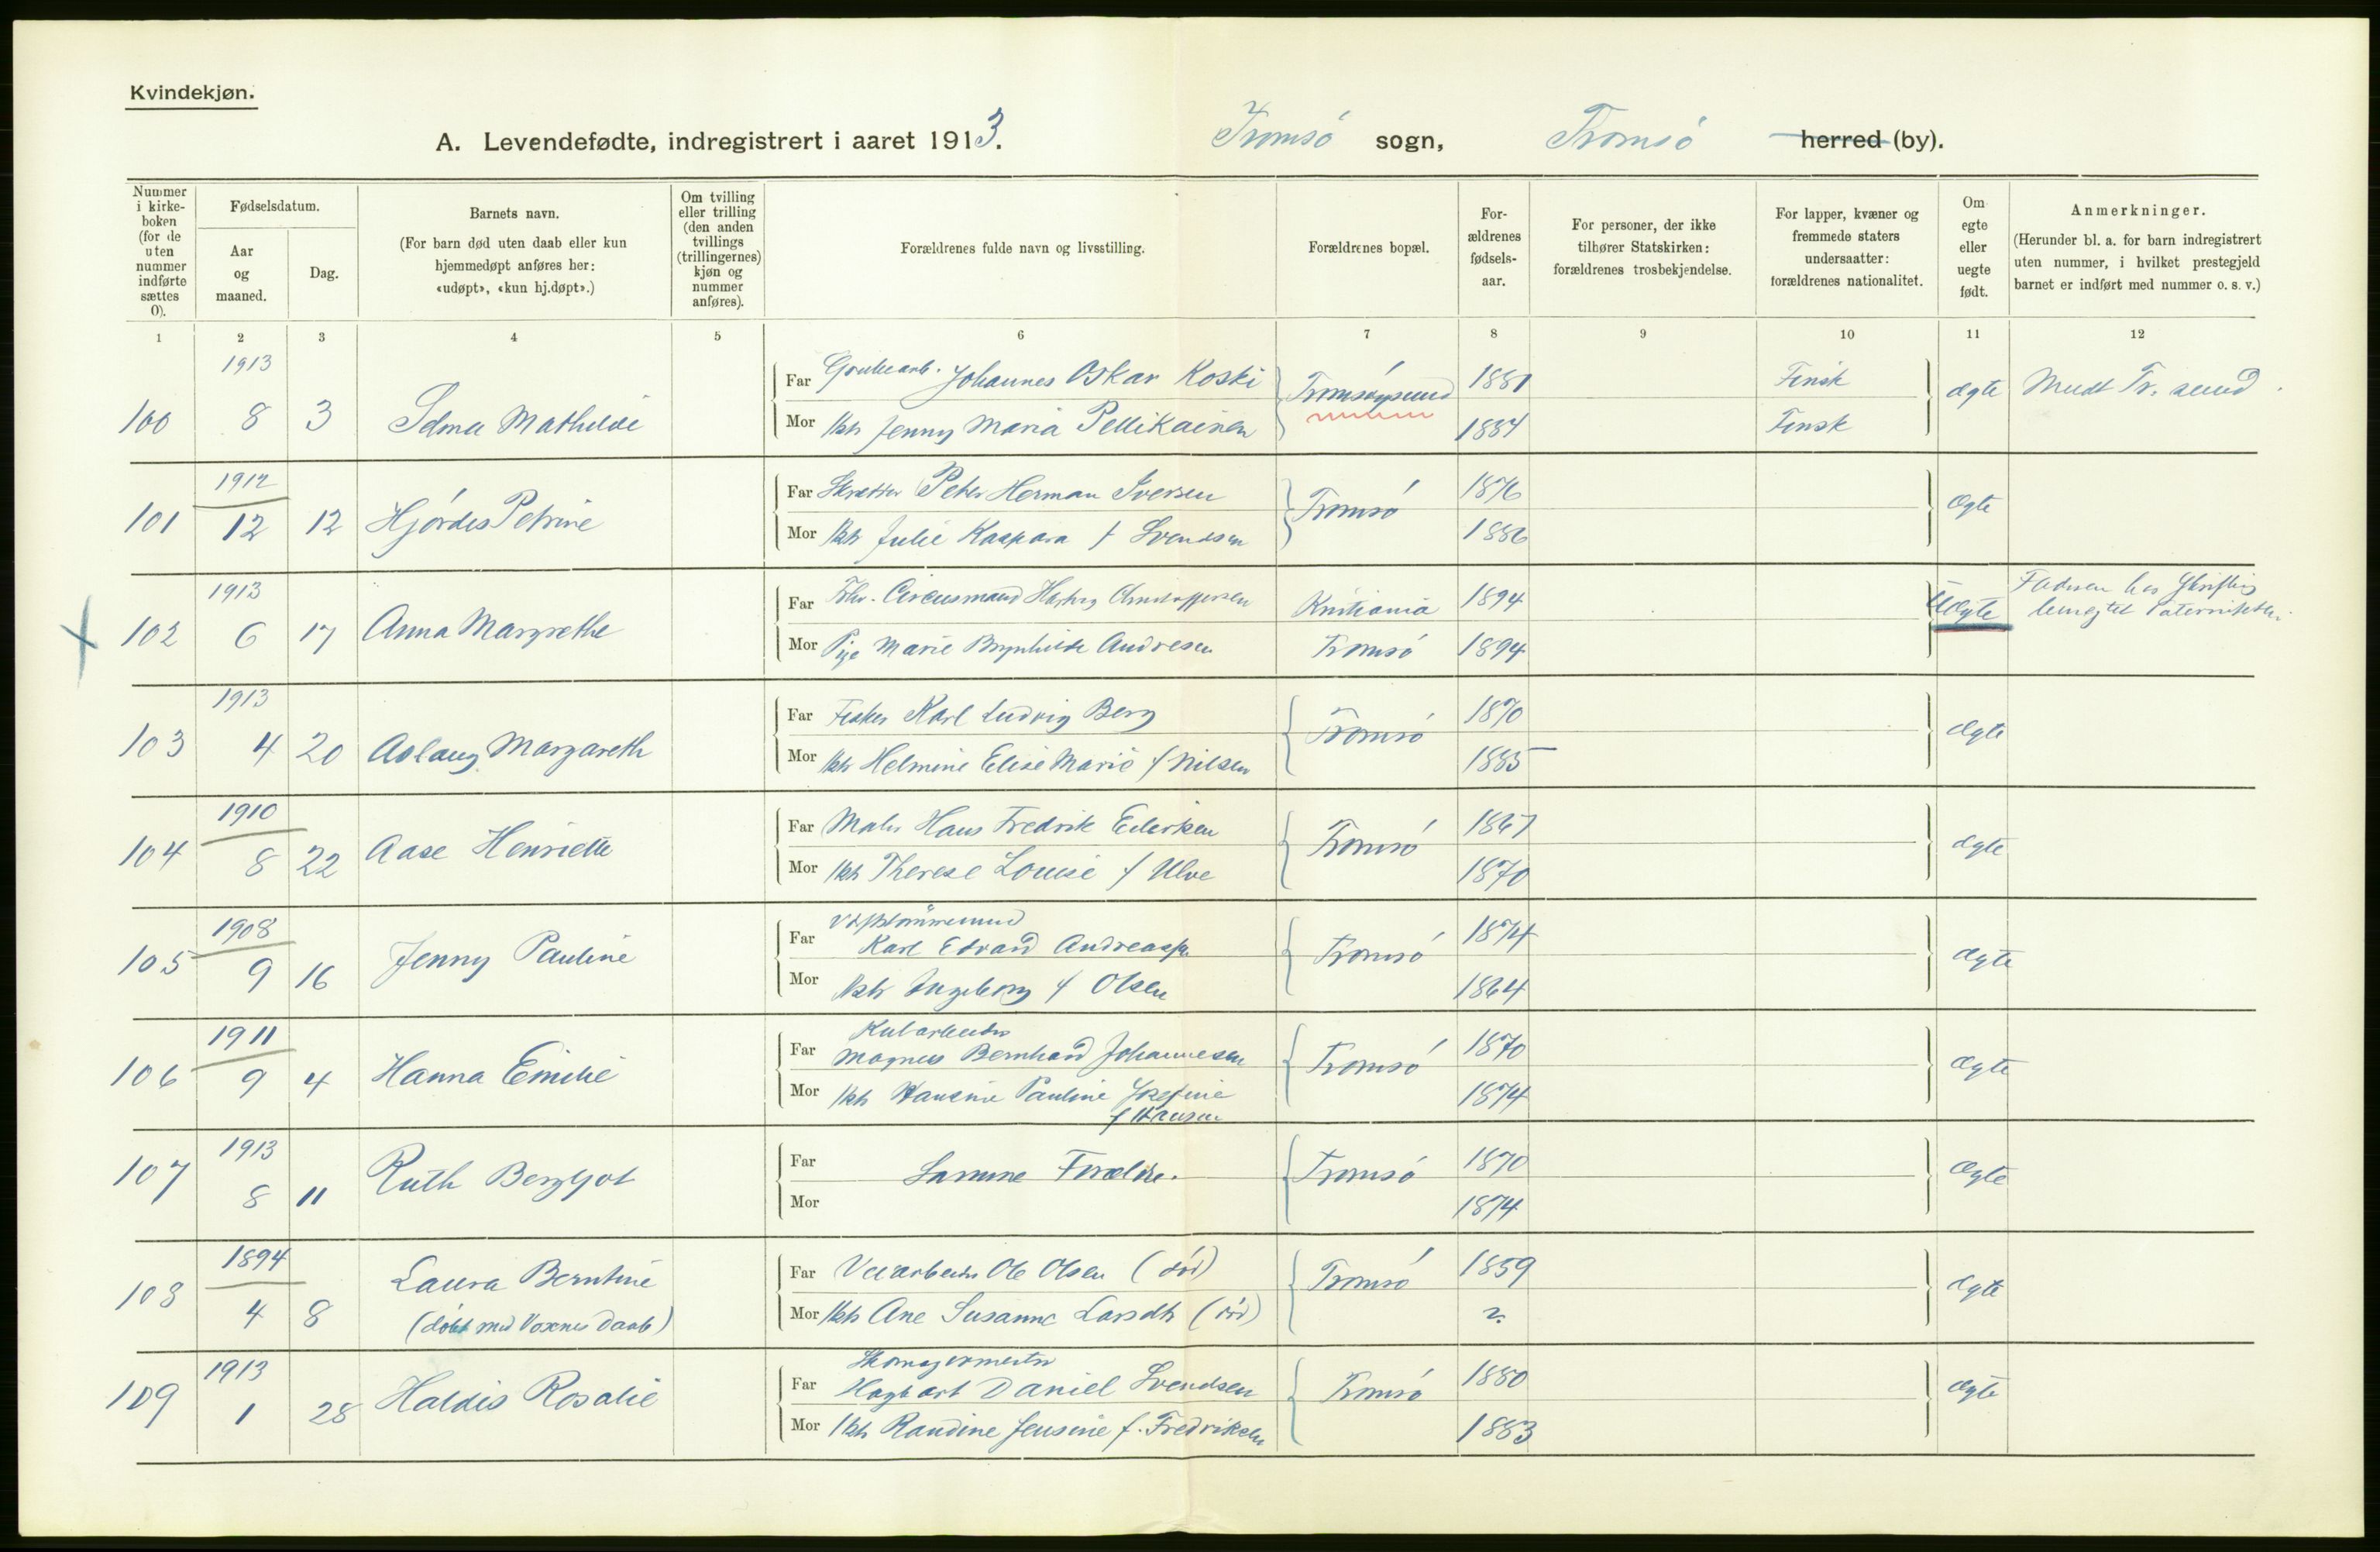 Kvindekjøn.
A. Levendefødte, indregistrert i aaret 1913. Tromsö sogn, Tromsö herred (by).
Nummer i kirke-boken (for de uten nummer indførte sættes 0).
Fødselsdatum.
Aar og maaned.
Dag.
Barnets navn.
(For barn død uten daab eller kun hjemmedøpt anføres her: «udøpt», «kun hj.døpt».)
Om tvilling eller trilling (den anden tvillings (trillingernes) kjøn og nummer anføres).
Forældrenes fulde navn og livsstilling.
Forældrenes bopæl.
For-ældrenes fødsels-aar.
For personer, der ikke tilhører Statskirken: forældrenes trosbekjendelse.
For lapper, kvæner og fremmede staters undersaatter: forældrenes nationalitet.
Om egte eller uegte født.
Anmerkninger.
(Herunder bl. a. for barn indregistrert uten nummer, i hvilket prestegjeld barnet er indført med nummer o. s. v.)
1 2 3 4 5 6 7 8 9 10 11 12
1913
Far Grubearb. Johannes Oskar Koski Tromsøysund 1881 Finsk ægte
100 8 3 Selma Mathilde
Mor Hst Jenny Maria Pellikainen 1884 Finsk
1912
Far Skrædder Peter Herman Iversen Tromsö 1876 ægte
101 12 12 Hjördis Petrine
Mor Hst Julie Kaspara f Svendsen 1886
1913
Far Circusmand Christoffersen Kristiania 1894 Uægte Faderen har skriftlig benegtet Paterniteten.
102 6 17 Anna Margrethe
Mor Pige Marie Brynhilde Andresen Tromsö 1894
1913
Far Fisker Karl Ludvig Berg Tromsö 1870 ægte
103 4 20 Aslaug Margareth
Mor Hst Helmine Elise Marie f Nilsen 1885
1910
Far Maler Hans Fredrik Eilertsen Tromsö 1867 ægte
104 8 22 Aase Henriette
Mor Hst Therese Louise f Ulve 1870
1908
Far Karl Edvard Andreassen Tromsö 1874 ægte
105 9 16 Jenny Pauline
Mor Hst Ingeborg f Olsen 1864
1911
Kularbeider
Far Magnus Bernhard Johannesen Tromsö 1870 ægte
106 9 4 Hanna Emilie
Mor Hst Hansine Pauline Josefine f Hansen 1874
1913
Far Samme Forældre. Tromsö 1870 ægte
107 8 11 Ruth Bergljot
Mor 1874
1894
Far Veiarbeider Ole Olsen (död) Tromsö 1859 ægte
108 4 8 Laura Berntine
(döbt med Voxnes Daab)
Mor Hst Ane Susanne Larsdtr (död) ?
1913
Skomagermester
Far Hagbart Daniel Svendsen Tromsö 1880 ægte
109 1 28 Haldis Rosalie
Mor Hst Randine Jensine f. Fredriksen 1883